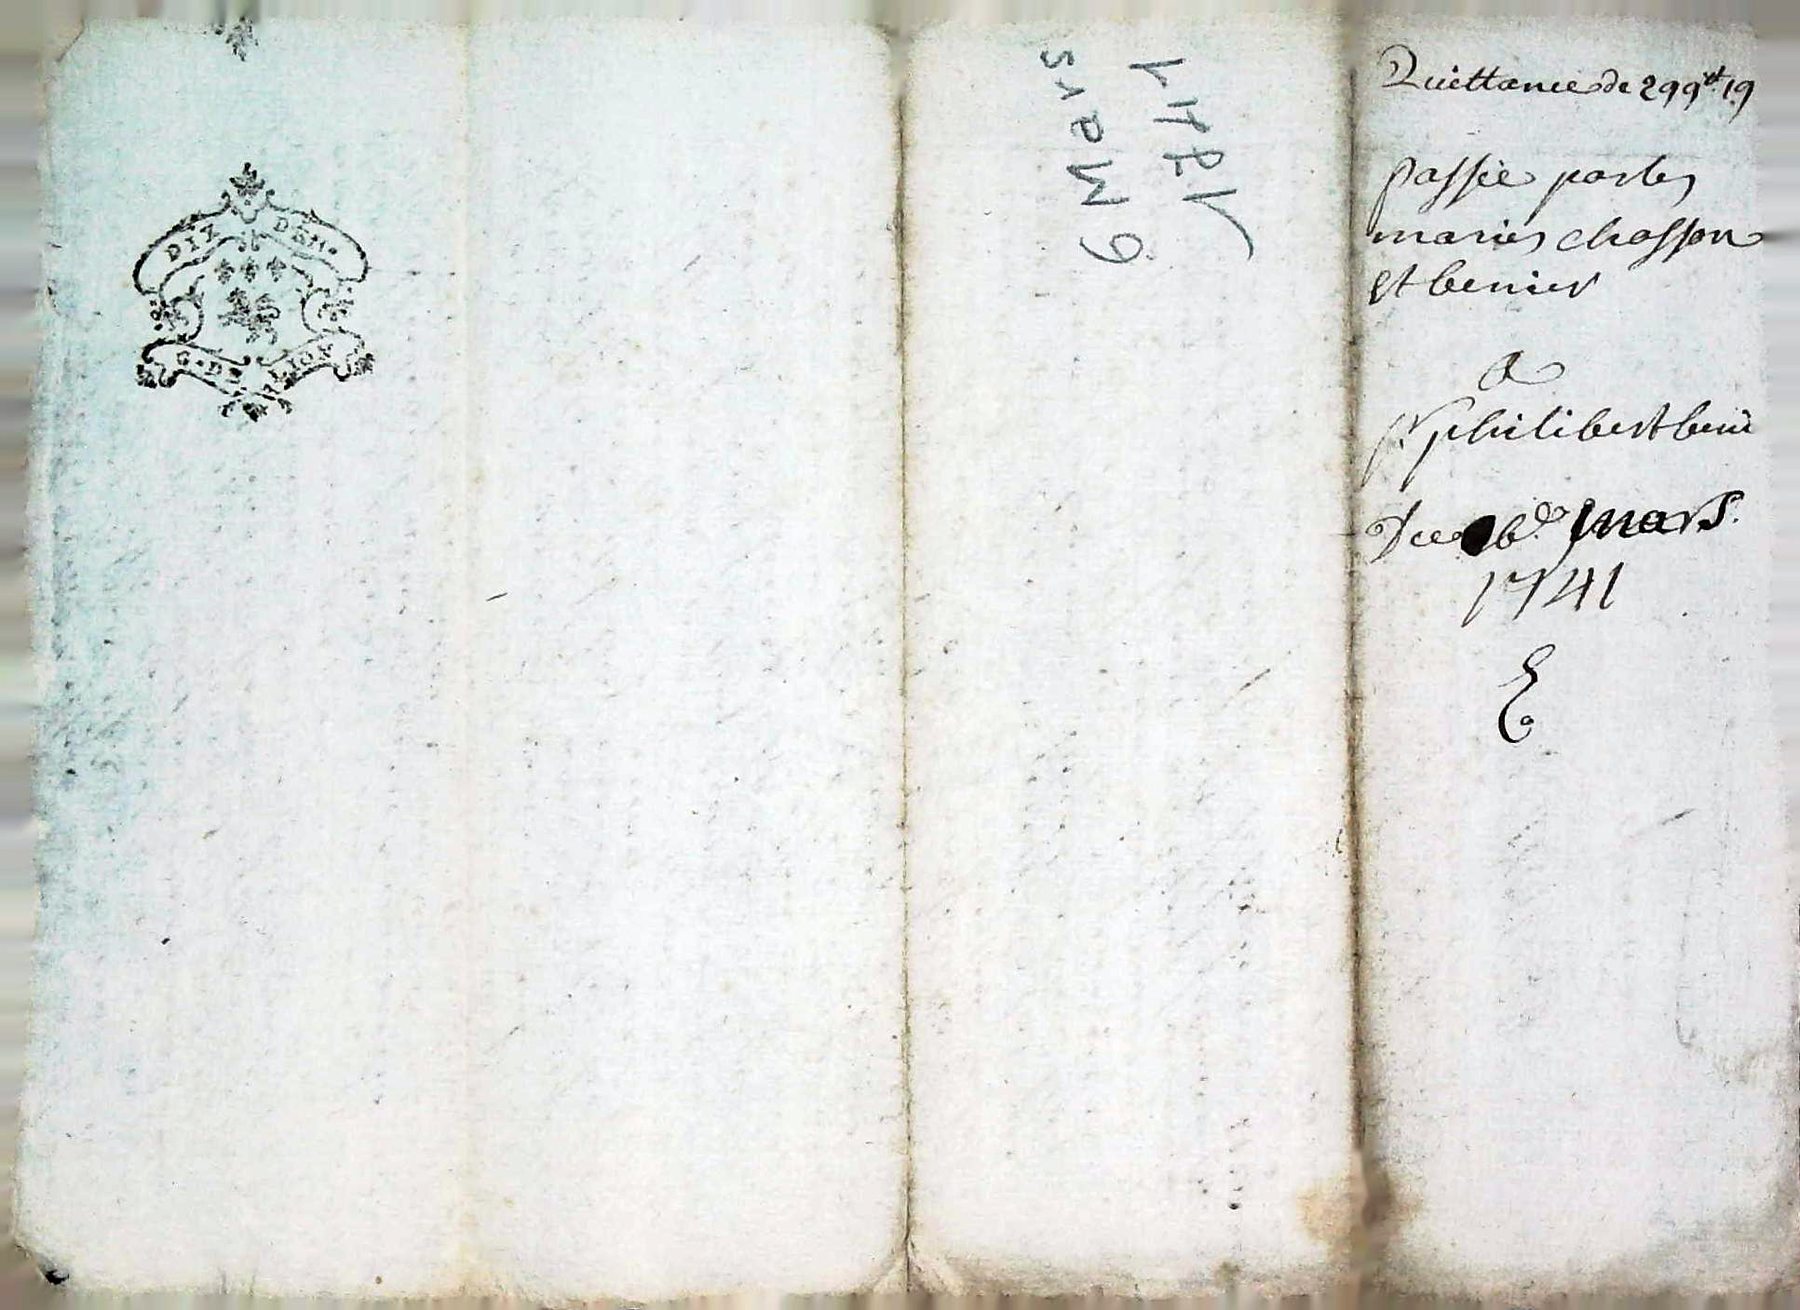 DIX DEN.
G. DE LION
6 Mars
1741
Quittance de 299tt 19
passée par les
mariés chasson
et benier
A
sr philibert beni
Du 6e mars
1741